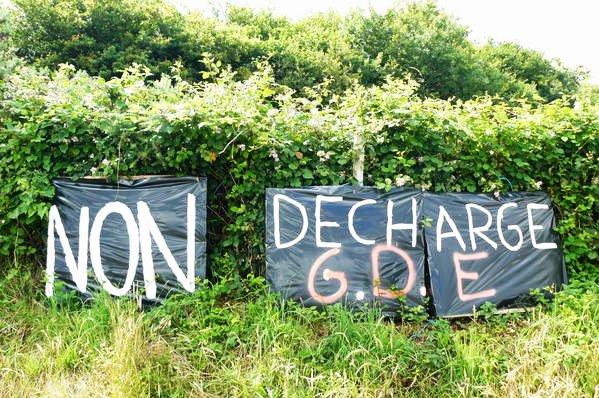 NON
DECHARGE
G.D.E